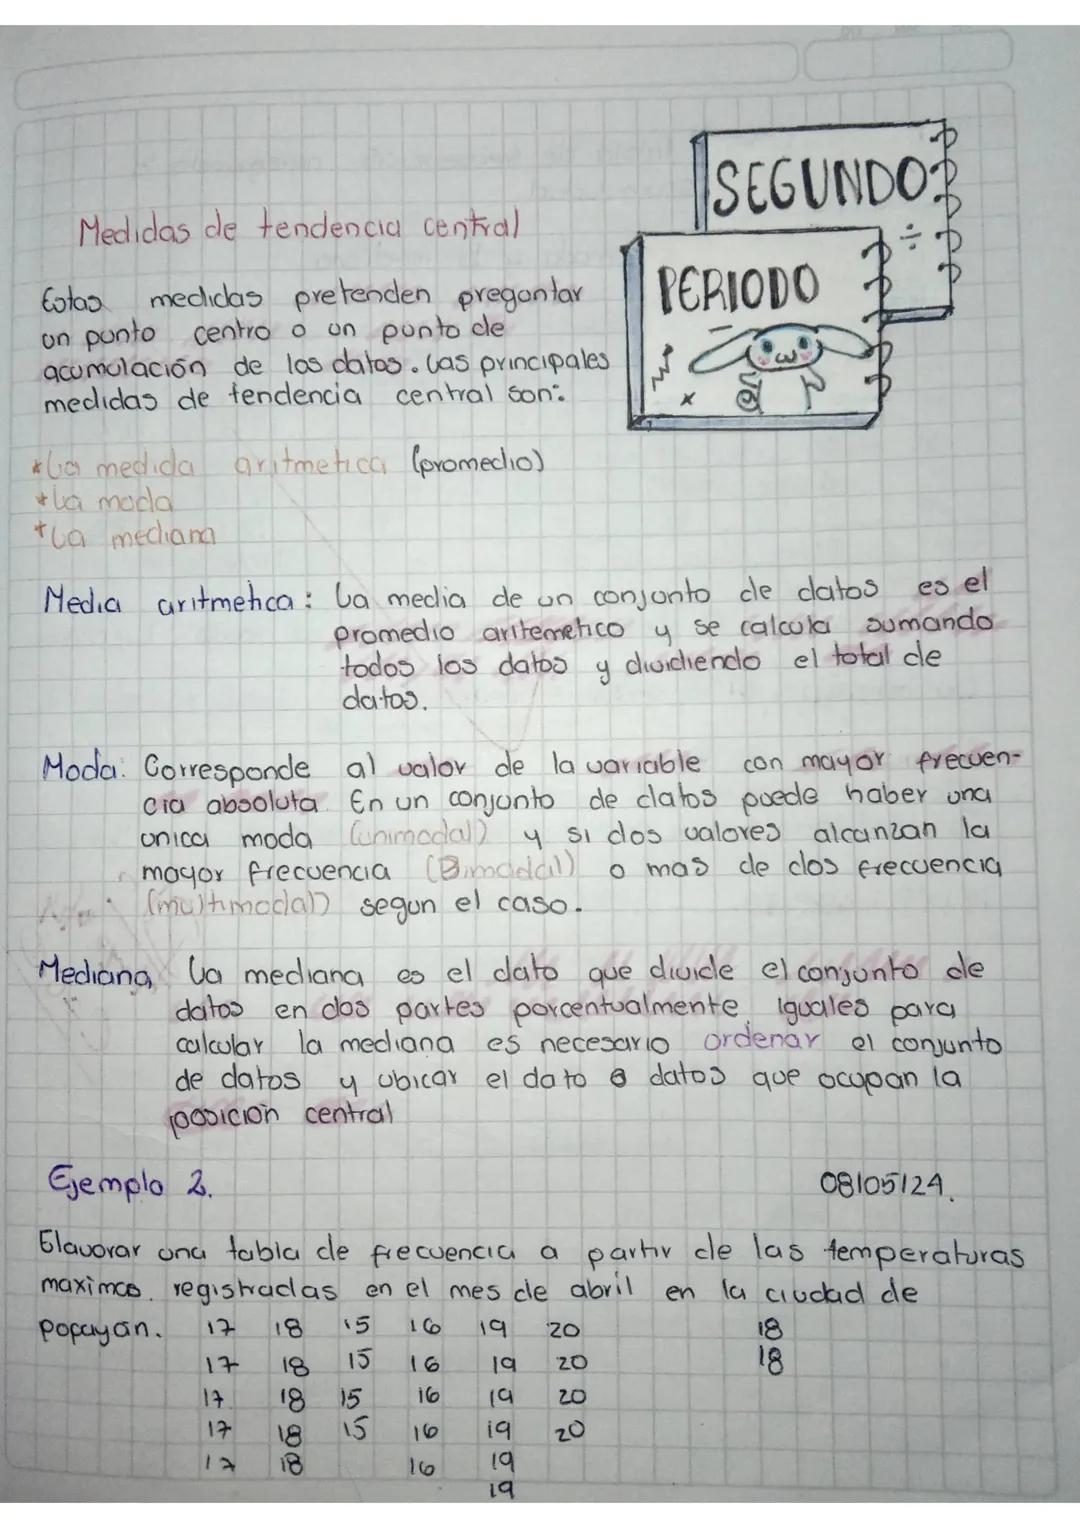 SEGUNDO
PERIODO
Medidas de tendencia central
Estas medidas pretenden pregontar
un punto centro o un punto de
acumulación de los datos. Las principales
medidas de tendencia central son:
*La medida aritmetica (promedio)
*La moda
*La mediana
Media aritmetica: La media de un conjunto de datos es el
promedio aritemetico y se calcula sumando
todos los datos y dividiendo el total de
datos.
Moda: Corresponde al valor de la variable con mayor frecuen-
cia absoluta. En un conjunto de datos puede haber una
unica moda (unimodal) y si dos valores alcanzan la
mayor frecuencia (Bimodal) o mas de dos frecuencia
(multimodal) segun el caso.
Mediana La mediana es el dato que divide el conjunto de
datos en dos partes porcentualmente iguales para
calcular la mediana es necesario ordenar el conjunto
de datos y ubicar el dato o datos que ocupan la
posición central
Ejemplo 2. 08/05/24.
Elavorar una tabla de frecuencia a partir de las temperaturas
maximas registradas en el mes de abril en la ciudad de
popayan. 17 18 15 16 19 20 18
17 18 15 16 19 20 18
17 18 15 16 19 20
17 18 15 16 19 20
17 18 16 19
19